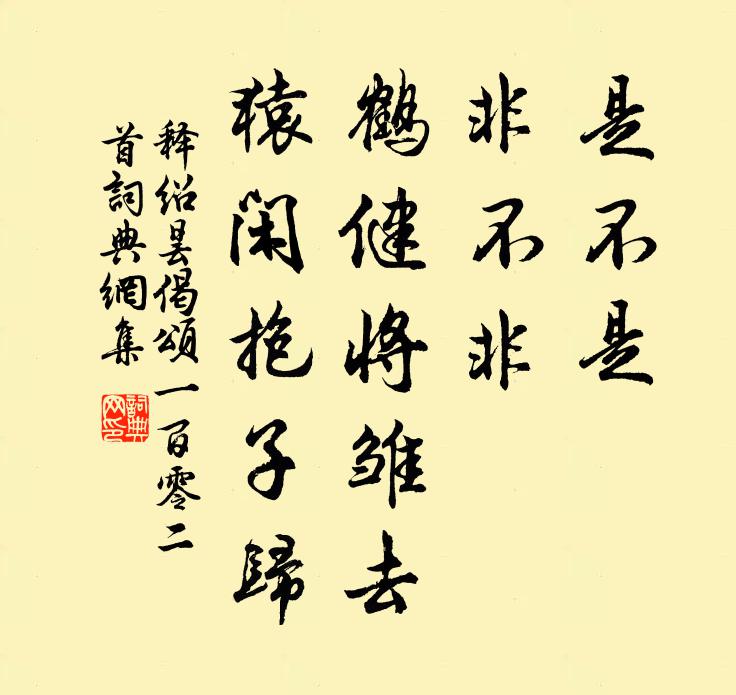 是不是
非不非
鶴健將雛去
猿闲抱子歸
释绍昙偈頌一百零二
首詞典網集
詞典
网印